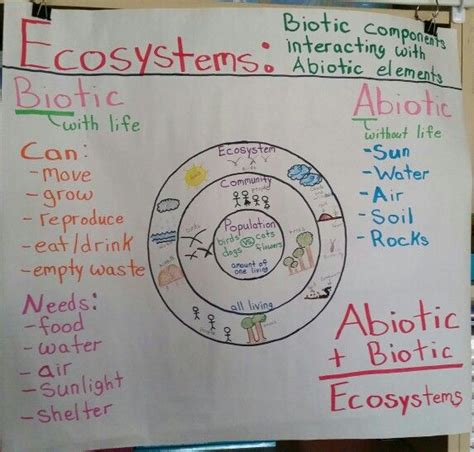 Ecosystems:
Biotic components
interacting with
Abiotic elements
Biotic
with life
Can:
-move
-grow
-reproduce
-eat/drink
-empty waste
Needs:
-food
-water
-air
-Sunlight
-shelter
Ecosystem
Community
Population
birds vs cats
dogs flowers
amount of
one living
all living
Abiotic
without life
-Sun
-Water
-Air
-Soil
-Rocks
Abiotic
+ Biotic
Ecosystems